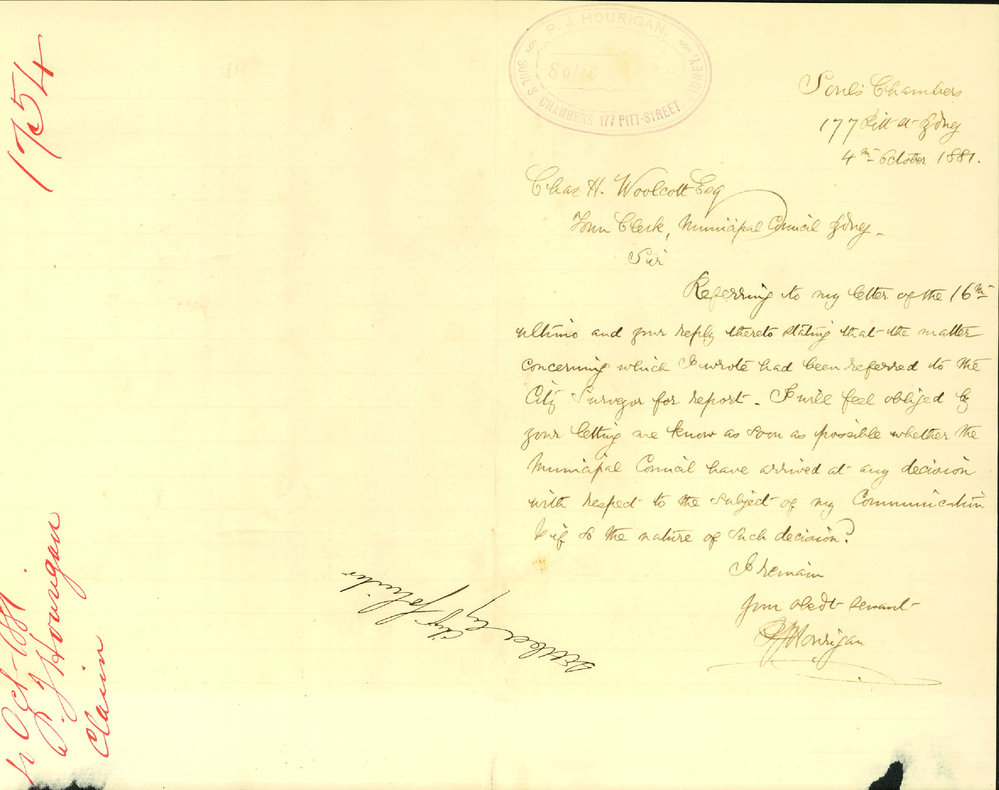 1754
4 Oct 1881
P. J Hourigan
Claim
P. J. HOURIGAN.
Solic
SOUL'S CHAMBERS 177 PITT-STREET SYDNEY.
Soul's Chambers
177 Pitt St Sydney
4th October 1881.
Chas H. Woolcott Esq
Town Clerk, Municipal Council Sydney.
Sir
Referring to my letter of the 16th
ultimo and your reply thereto stating that the matter
concerning which I wrote had been referred to the
City Surveyor for report. I will feel obliged by
your letting me know as soon as possible whether the
Municipal Council have arrived at any decision
with respect to the subject of my Communication
& if so the nature of such decision?
I remain
Your obedt servant
P J Hourigan
City Solicitor